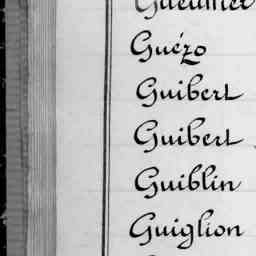 Guézo
Guibert
Guibert
Guiblin
Guiglion